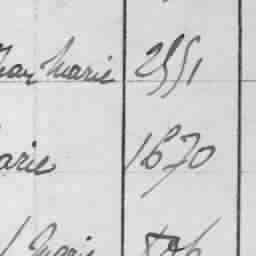 Jean Marie 2551
Marie 1670
Marie 806